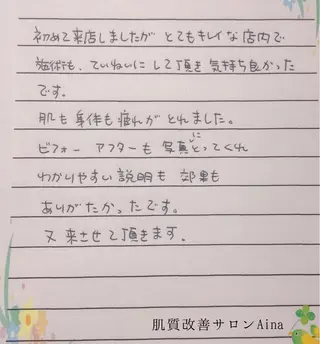 初めて来店しましたが とてもキレイな店内で
施術も、ていねいにして頂き 気持ち良かった
です。
肌も身体も疲れがとれました。
ビフォー アフターも 写真にとってくれ
わかりやすい説明も 効果も
ありがたかったです。
又来させて頂きます。
肌質改善サロンAina